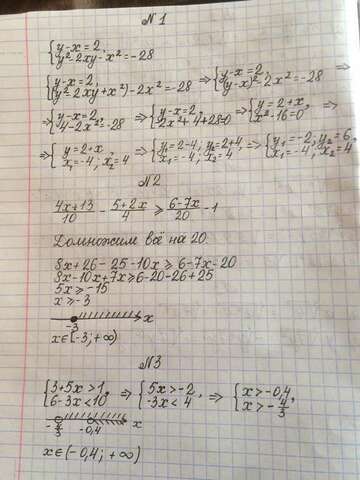 №1
{y-x=2,
{y²-2xy-x²=-28
{y-x=2, {(y²-2xy+x²)-2x²=-28 ⇒ {y-x=2, {(y-x)²-2x²=-28 ⇒
⇒ {y-x=2, {4-2x²=-28 ⇒ {y-x=2, {-2x²+4+28=0 ⇒ {y=2+x, {x²-16=0 ⇒
⇒ {y=2+x, {x₁=-4, x₂=4 ⇒ {y₁=2-4, y₂=2+4, {x₁=-4, x₂=4 ⇒ {y₁=-2, y₂=6, {x₁=-4, x₂=4
№2
(4x+13)/10 - (5+2x)/4 ⩾ (6-7x)/20 - 1
Домножим всё на 20.
8x+26-25-10x ⩾ 6-7x-20
8x-10x+7x ⩾ 6-20-26+25
5x ⩾ -15
x ⩾ -3
-3 x
x∈[-3;+∞)
№3
{3+5x>1, {6-3x<10, ⇒ {5x>-2, {-3x<4, ⇒ {x>-0,4, {x>-4/3
-4/3 -0,4 x
x∈(-0,4;+∞)